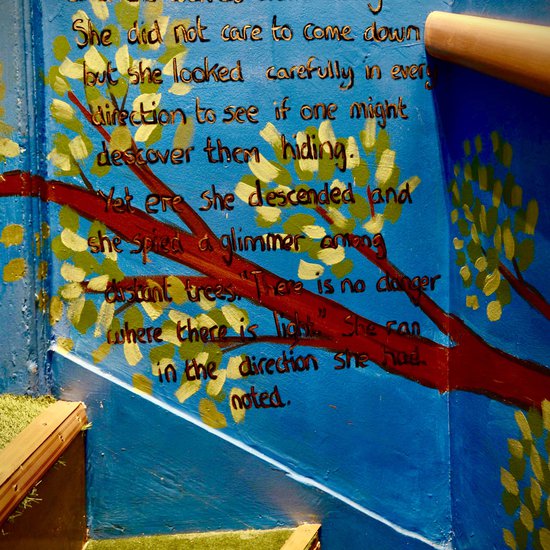 She did not care to come down
but she looked carefully in every
direction to see if one might
descover them hiding.
Yet ere she descended and
she spied a glimmer among
distant trees. "There is no danger
where there is light." She ran
in the direction she had
noted.